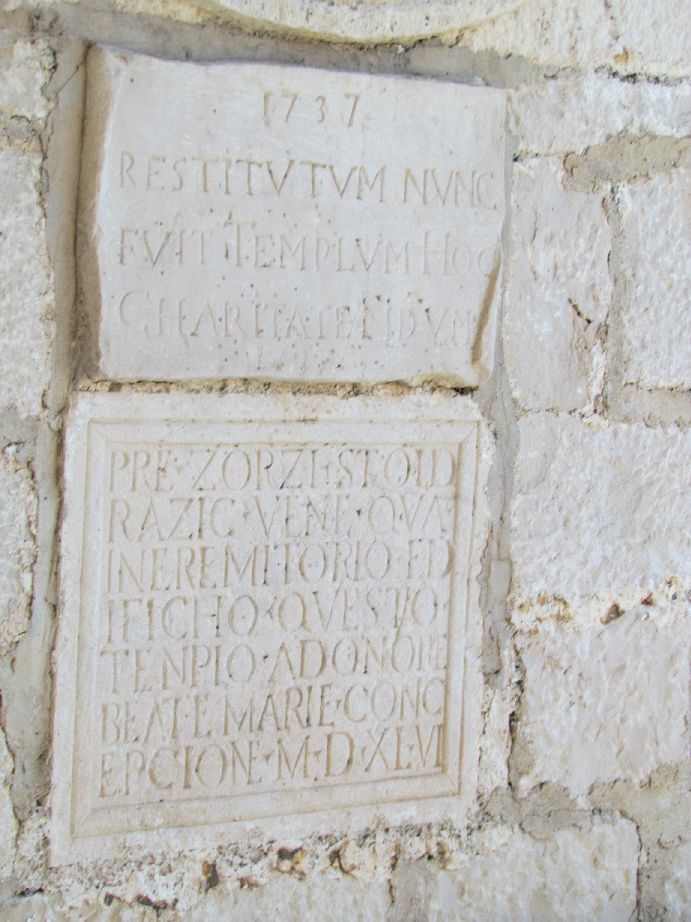 1737
RESTITVTVM NVNC
FVIT TEMPLVM HOC
CHARITATE FIDVM
PRE·ZORZI·STOID
RAZIC·VENE·QVA
INEREMITORIO·ED
IFICHO·QVESTO·
TENPIO·ADONORE
BEATE·MARIE·CONC
EPCION·M·D·XLVI